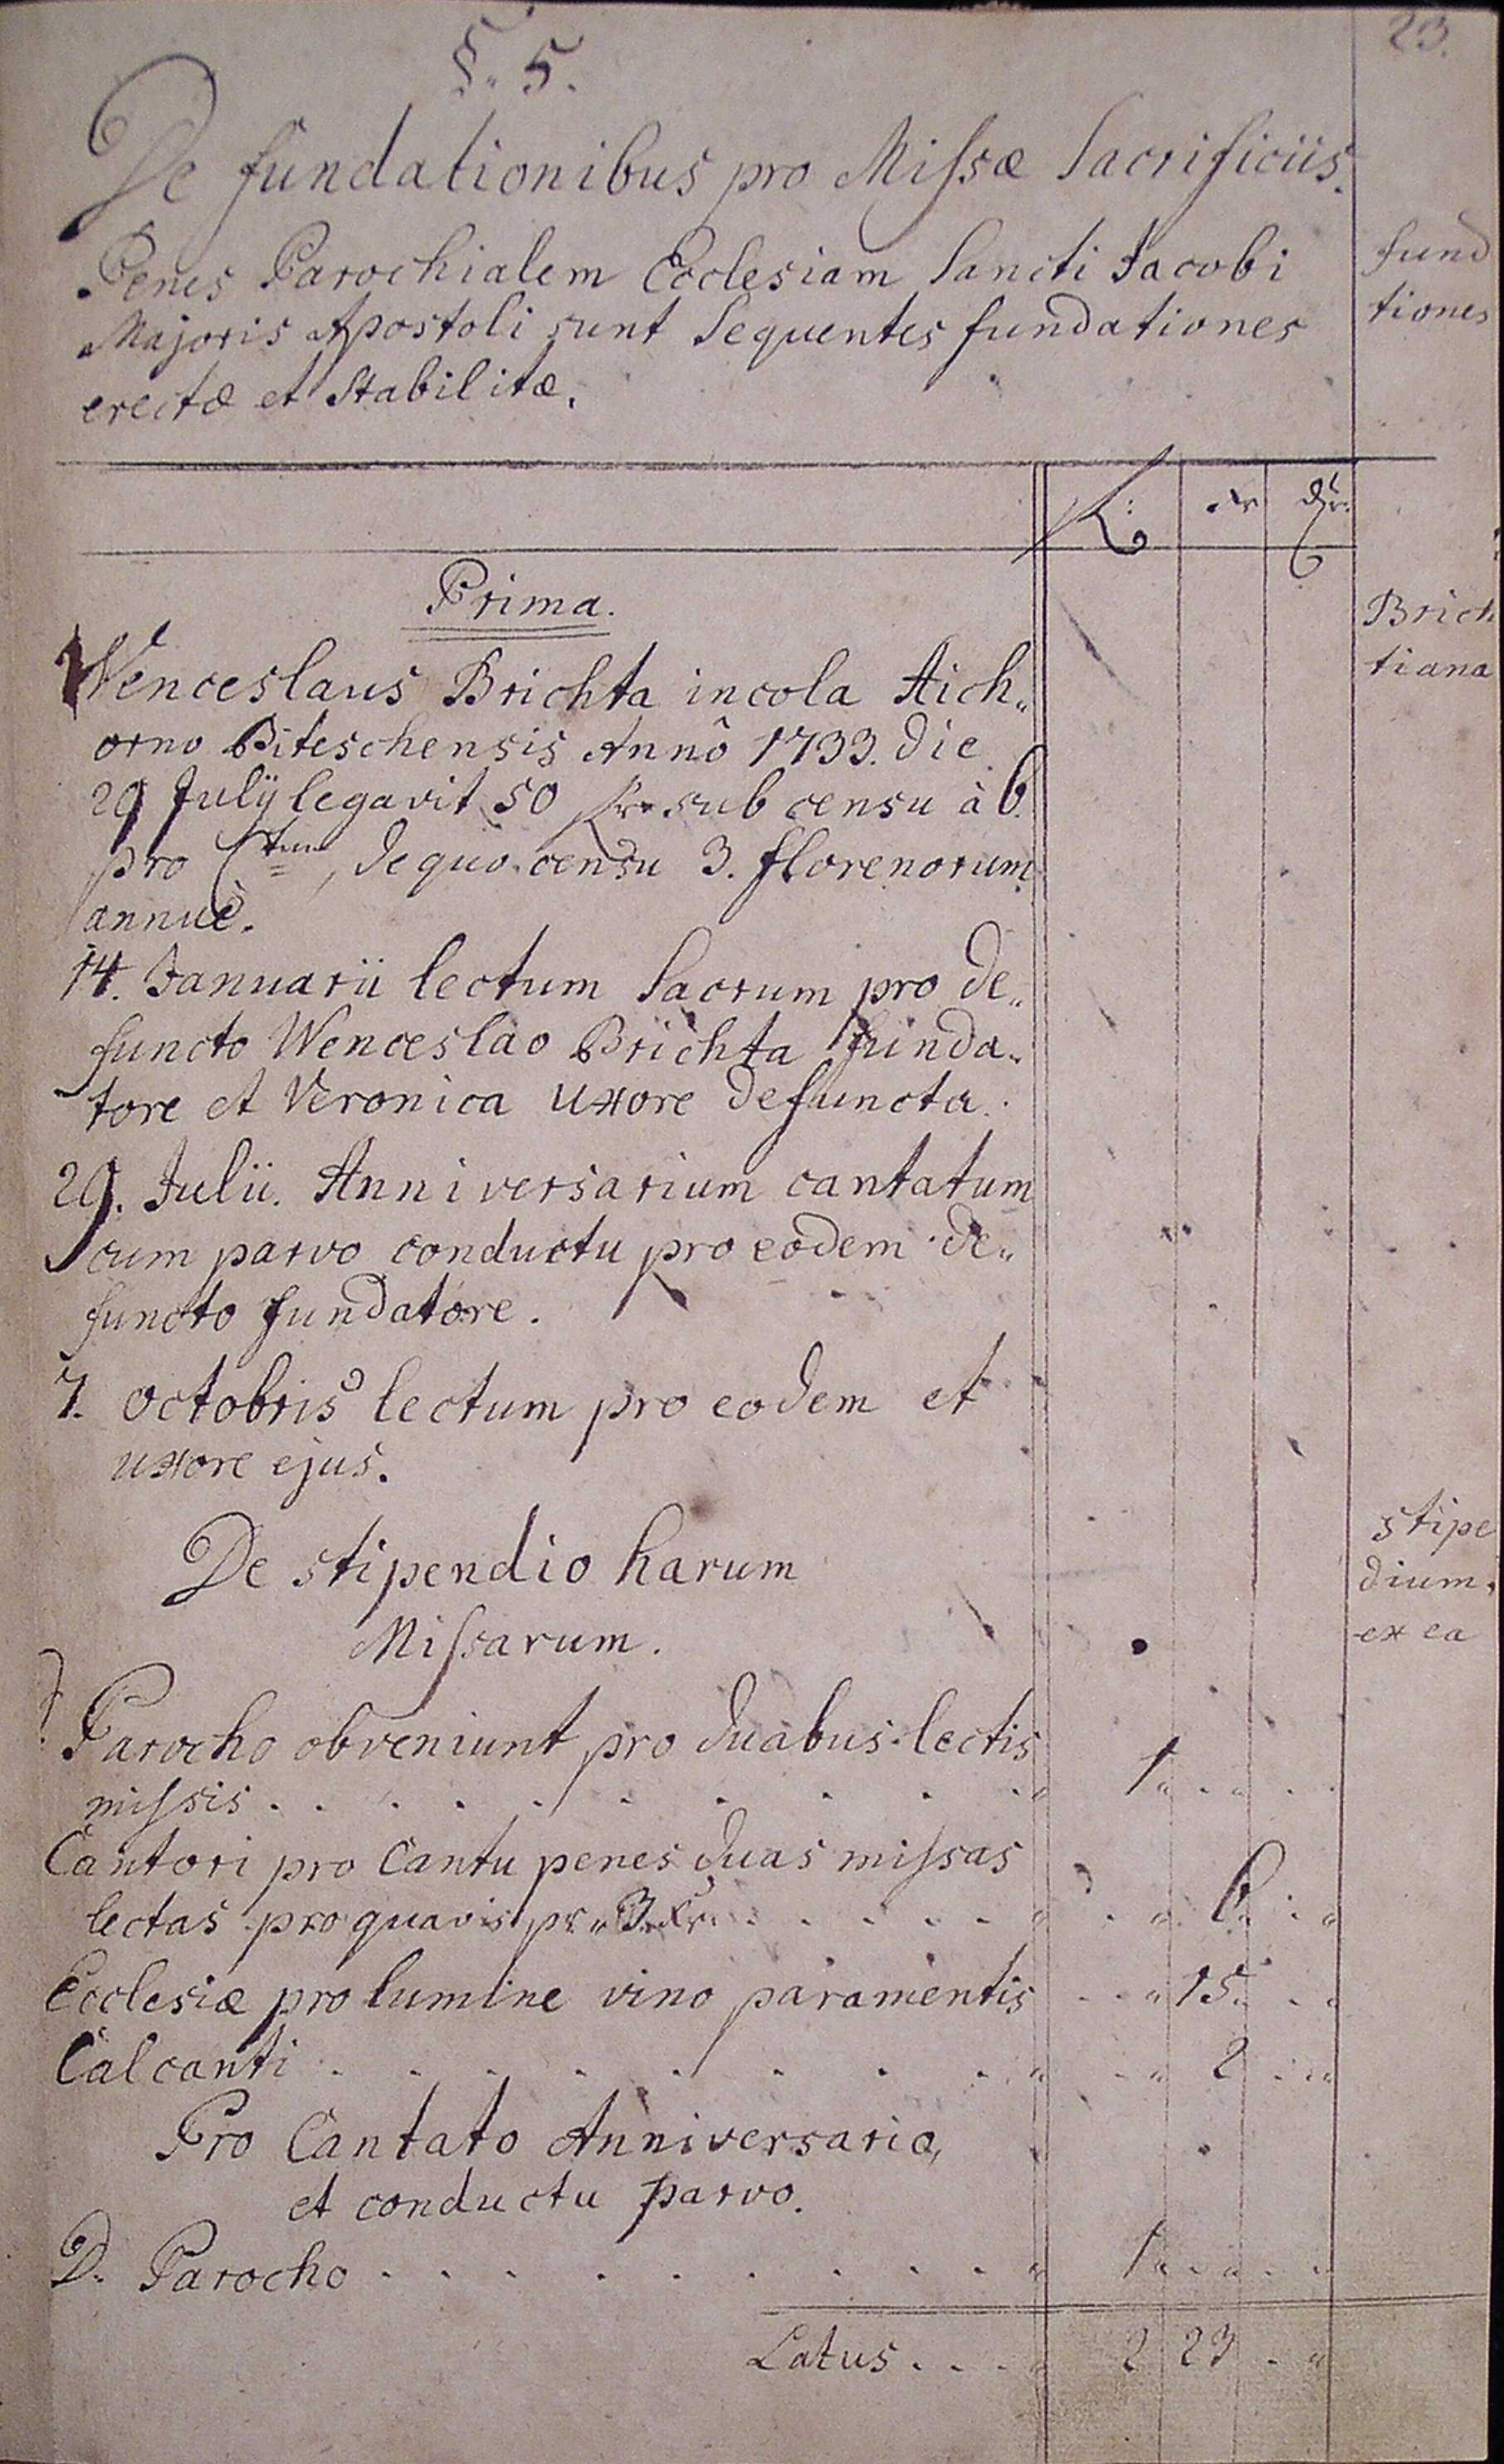 23.
§. 5.
De fundationibus pro Missæ Sacrificiis.
Penes Parochialem Ecclesiam Sancti Jacobi
Majoris Apostoli sunt Sequentes fundationes
erectæ et Stabilitæ.
fund
tiones
xr
Prima.
Brich
tiana
Wenceslaus Brichta incola Aich„
orno Biteschensis Annô 1733. die
29 Julÿ legavit 50 fr. sub censu à 6.
pro Ctum, de quo censu 3. florenorum
annuè.
14. Januarii lectum Sacrum pro de„
functo Wenceslao Brichta funda„
tore et Veronica Uxore defuncta.
29. Julii. Anniversarium cantatum
cum parvo conductu pro eodem de„
functo fundatore.
7. octobris lectum pro eodem et
uxore ejus.
De stipendio harum
Missarum.
stipe
dium.
ex ea
Parocho obveniunt pro duabus lectis
missis . . . . . . . . . . „ 1 „ . „ . .
Cantori pro Cantu penes duas missas
lectas pro quavis pr „ 3 Xr. . . . . . „ . „ 6. . „
Ecclesiæ pro lumine vino paramentis . . „ 15. . . „
Calcanti . . . . . . . . „ . „ 2 . . „
Pro Cantato Anniversario,
et conductu parvo.
D. Parocho . . . . . . . . . „ 1 „ . „ . „
Latus . . . „ 2 23 . „